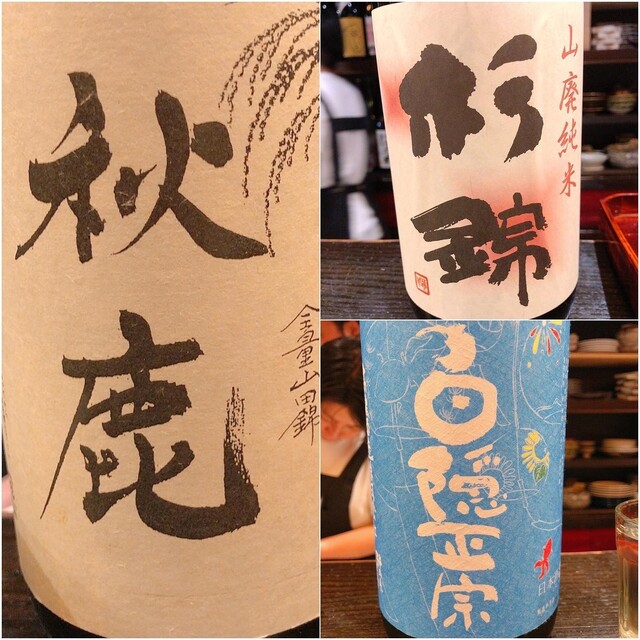 秋鹿
全量山田錦
山廃純米
杉錦
白隠正宗
日本酒